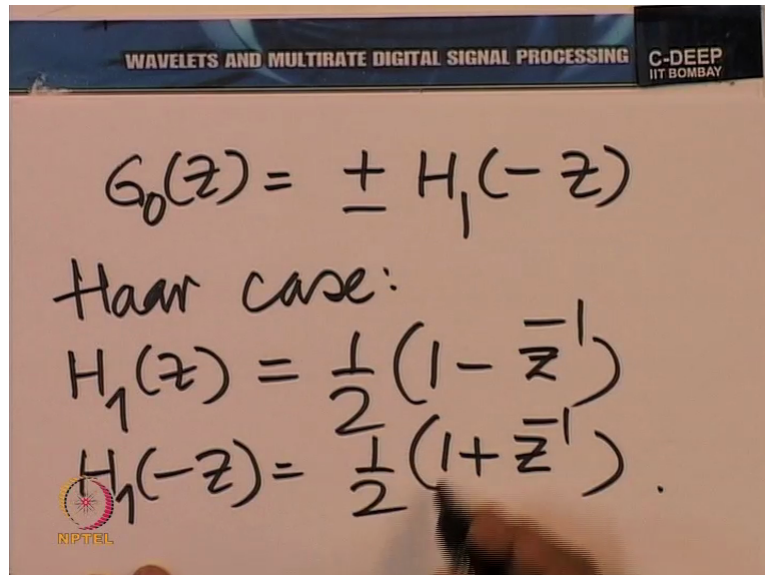 WAVELETS AND MULTIRATE DIGITAL SIGNAL PROCESSING
C-DEEP
IIT BOMBAY
G₀(Z) = ± H₁(- Z)
Haar case:
H₁(z) = 1/2 (1 - z⁻¹)
H₁(-z) = 1/2 (1 + z⁻¹).
NPTEL